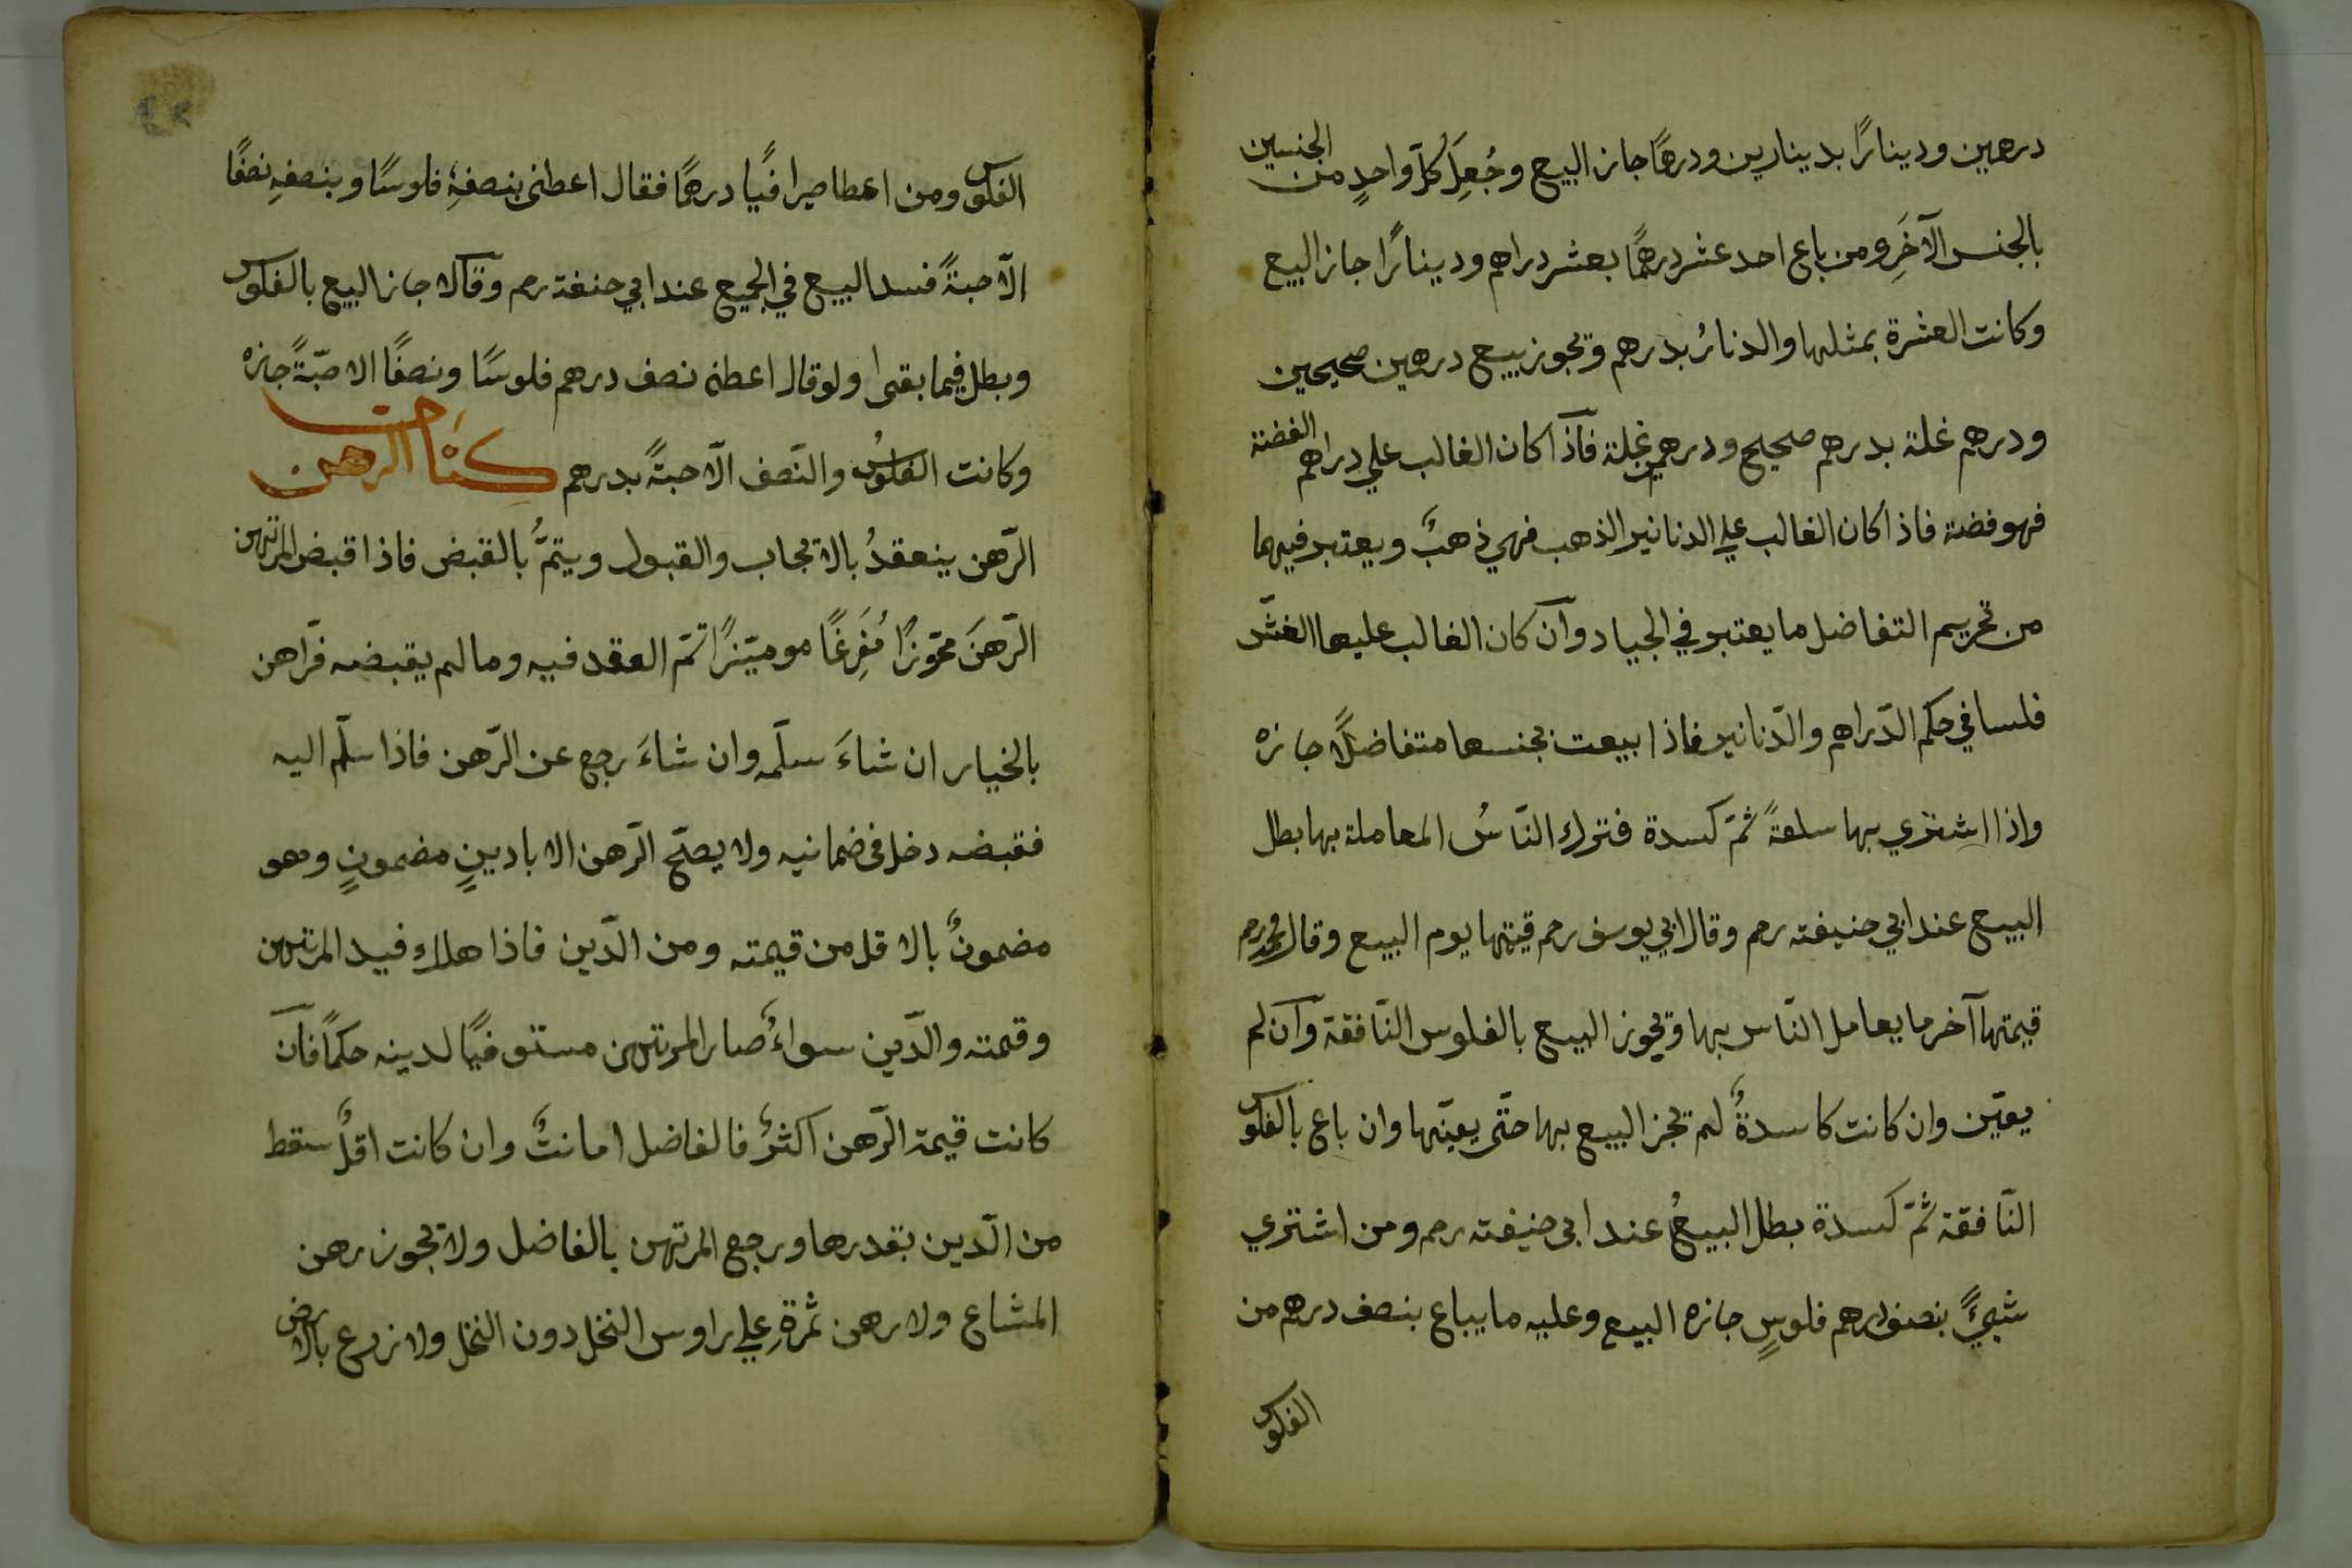 درهمين ودينارًا بدينارين ودرهمًا جاز البيع وجُعِلَ كُلّ واحدٍ من الجنسين
بالجنس الآخَرِ ومن باع احد عشر درهمًا بعشر دراهم ودينارًا جاز البيع
وكانت العشرة بمثلها والدنارُ بدرهم وتجوز بيع درهمين صحيحين
ودرهم غلة بدرهم صحيح ودرهمين غلة فاذا كان الغالب علي دراهم الفضة
فهو فضة فاذا كان الغالب علي الدنانير الذهب فهي ذهبٌ ويعتبر فيهما
من تحريم التفاضل ما يعتبر في الجياد وآن كان الغالب عليها الغشّ
فلسا في حكم الدّراهم والدّنانير فاذا بيعت بجنسها متفاضلًا جازه
واذا اشتري بها سلعةً ثمّ كسدة فترك النّاسُ المعاملة بها بطل
البيع عند ابي حنيفته رحم وقال ابي يوسف رحم قيتها يوم البيع وقال محمد رحم
قيمتها آخر ما يعامل النّاس بها وتجوز البيع بالفلوس النّافقة وآن لم
يعيّن وان كانت كاسدةٌ لم تجز البيع بها حتّى يعيّنها وان باع بالفلوس
النّافقة ثمّ كسدة بطل البيعُ عند ابى حنيفته رحم ومن اشتري
شيئًا بنصف درهم فلوسٍ جازه البيع وعليه ما يباع بنصف درهم من
الفلوس
الفلوس ومن اعطا صيرافيًا درهمًا فقال اعطنى بنصفهِ فلوسًا وبنصفهِ نصفًا
الّا حبةً فسد البيع في الجميع عند ابي حنفة رحم وقالا جاز البيع بالفلوس
وبطل فيما بقى ولو قال اعطنى نصف درهم فلوسًا ونصفًا الا حبّةً جازه
وكانت الفلوسُ والنّصف الّا حبةً بدرهم كتاب الرهن
الرّهن ينعقدُ بالاتجاب والقبول ويتمُّ بالقبض فاذا قبض المرتهن
الرّهنَ محوّزًا مُفَرِغًا موميّزًا تمّ العقد فيه وما لم يقبضه فرّاهن
بالخيار ان شاءَ سلّمه وان شاءَ رجع عن الرّهن فاذا سلّم اليه
فقبضه دخل فى ضمانيه ولا يصحّ الرّهن الا بادينٍ مضمونٍ وهو
مضمونٌ بالا قل من قيمته ومن الدّين فاذا هلك فيد المرتهن
وقمته والدّين سواءٌ صار المرتهن مستوفيًا لدينه حكمًا فآن
كانت قيمة الرّهن اكثرُ فالفاضل امانتٌ وان كانت اقلٌ سقط
من الدّين بقدرها ورجع المرتهن بالفاضل ولا تجوز رهن
المشاع ولا رهن ثمرةِ علي راوس النخل دون النخل ولا زرع بالارض